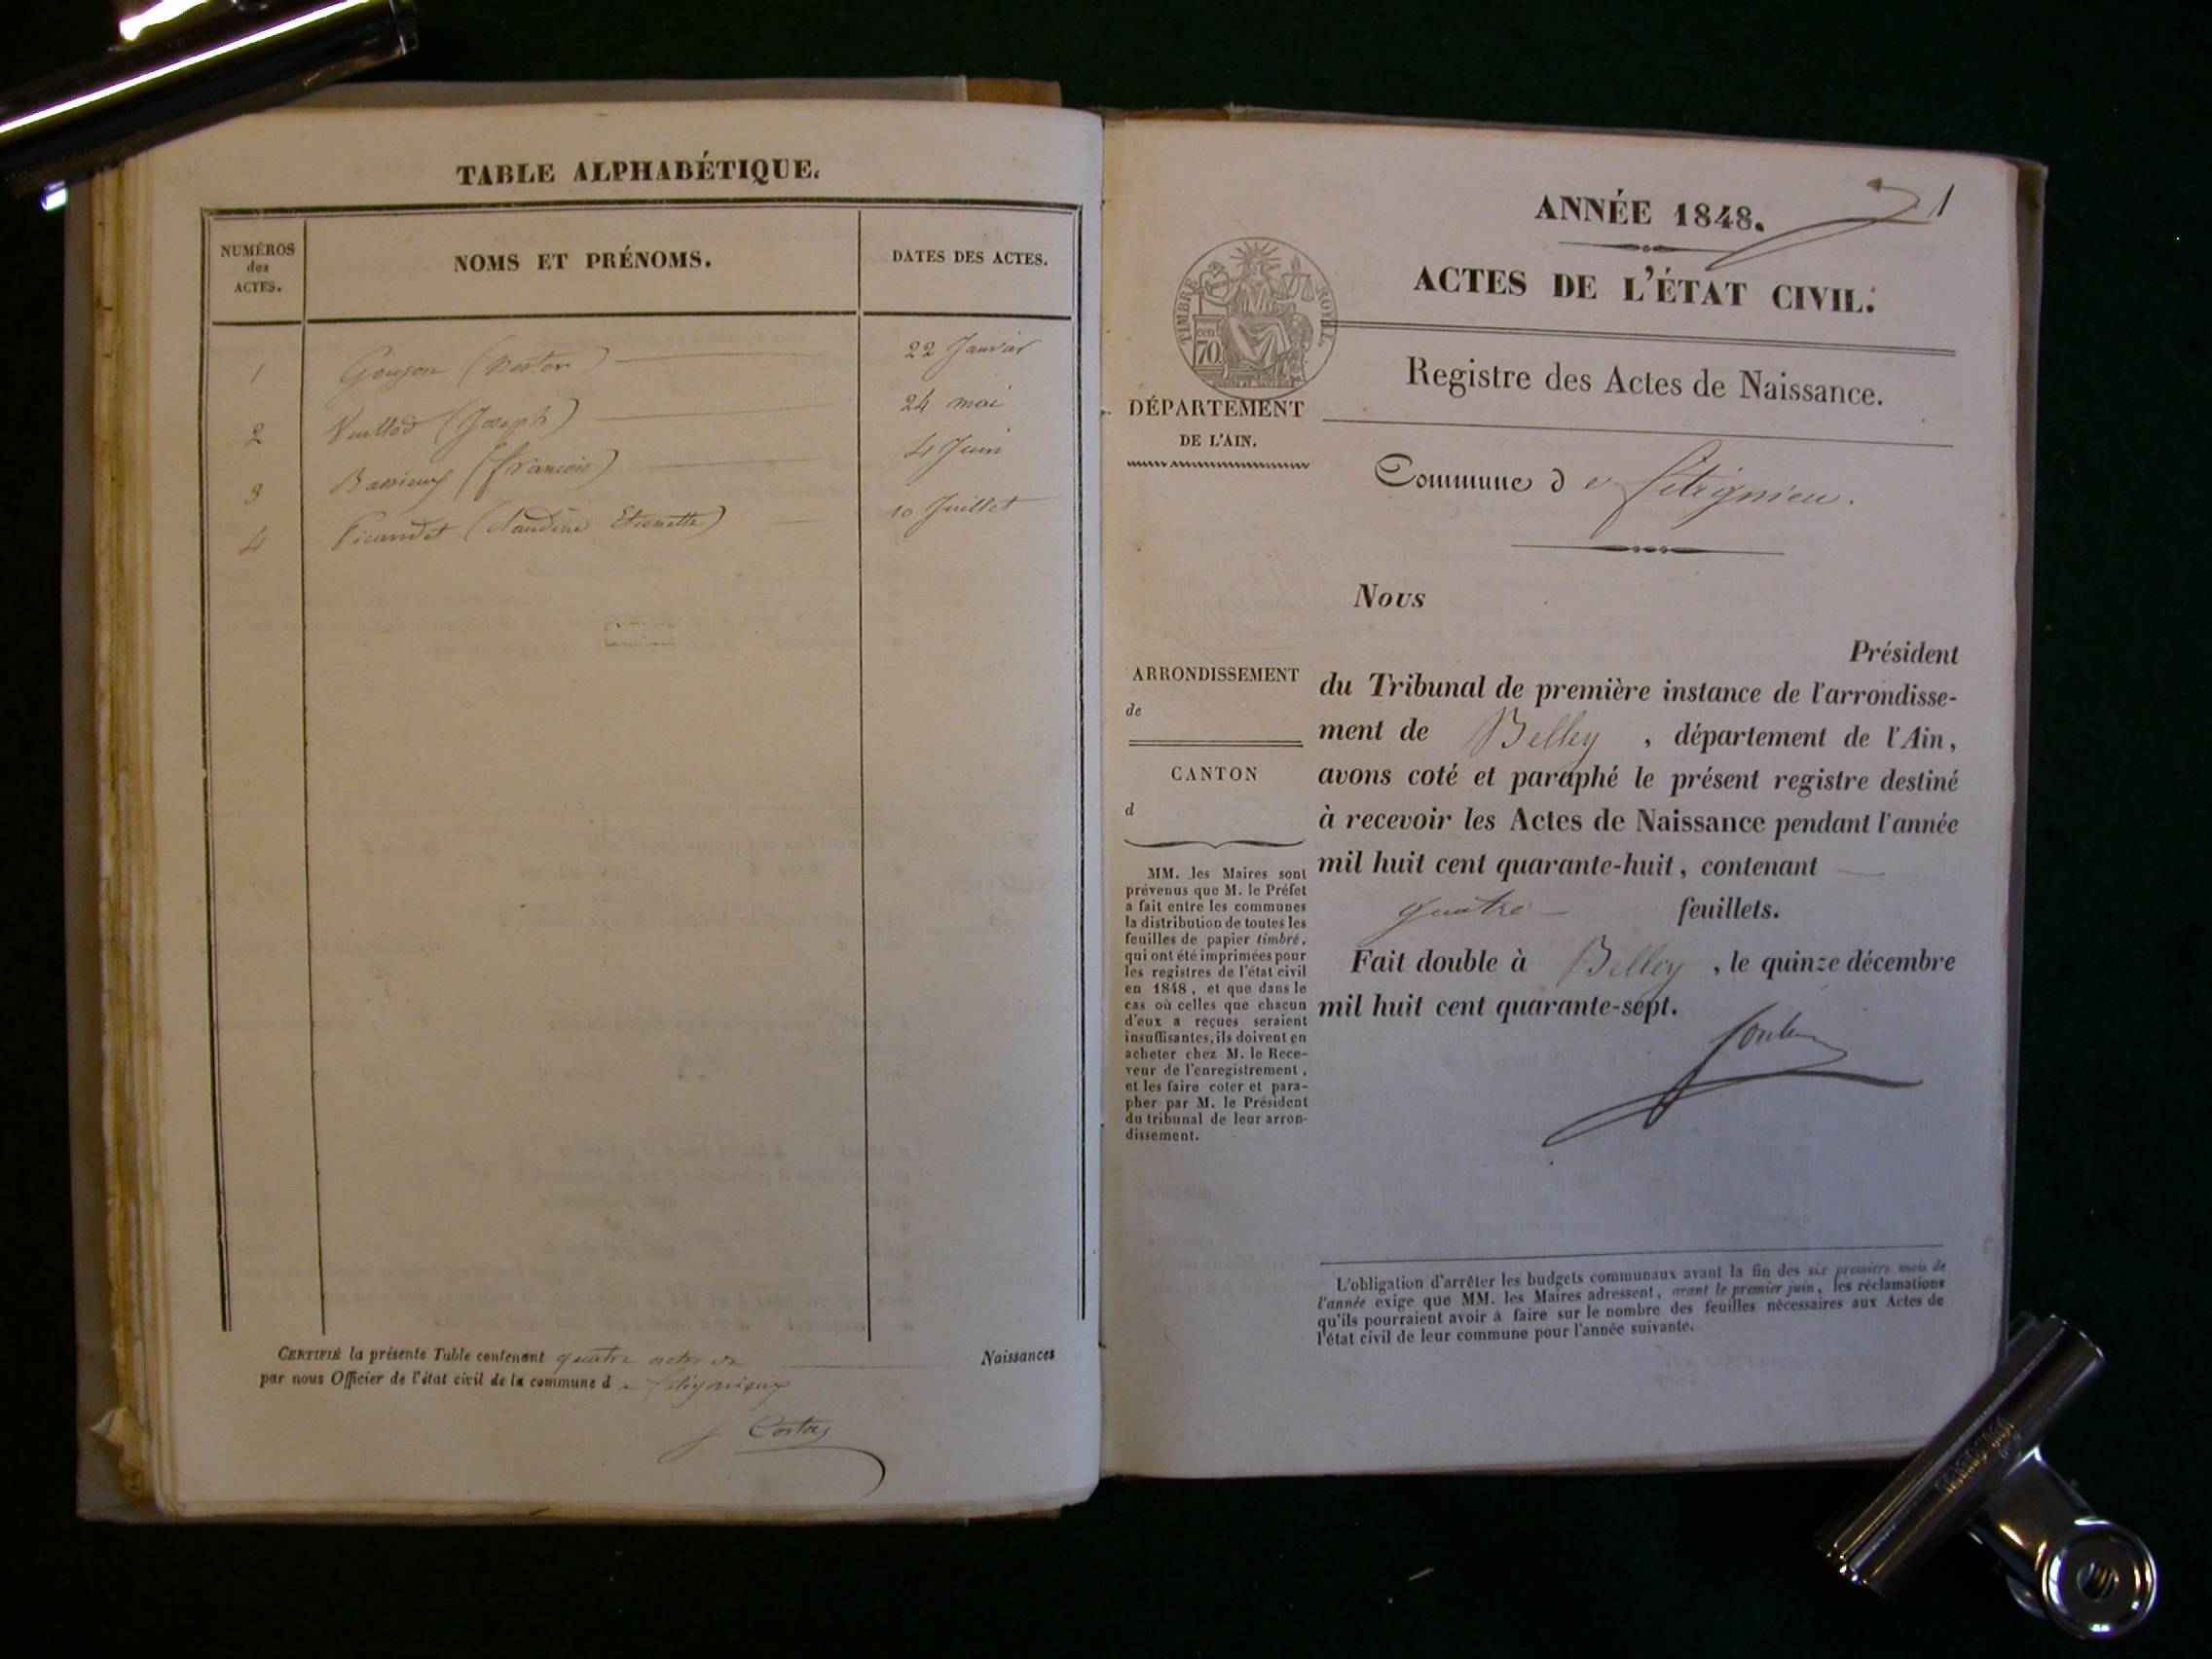 TABLE ALPHABÉTIQUE.
NUMÉROS
des
ACTES.
NOMS ET PRÉNOMS.
DATES DES ACTES.
1 Goujon (Nestor) 22 Janvier
2 (Joseph) 24 mai
3 (françois) 4 Juin
4 (Claudine Etienette) 10 Juillet
CERTIFIÉ la présente Table contenant quatre actes de Naissances
par nous Officier de l'état civil de la commune d e
1
ANNÉE 1848.
ACTES DE L'ÉTAT CIVIL.
TIMBRE ROYAL
cen
70.
Registre des Actes de Naissance.
DÉPARTEMENT
DE L'AIN.
Commune d e
Nous
Président
du Tribunal de première instance de l'arrondisse-
ment de Belley , département de l'Ain,
avons coté et paraphé le présent registre destiné
à recevoir les Actes de Naissance pendant l'année
mil huit cent quarante-huit, contenant
quatre feuillets.
Fait double à Belley , le quinze décembre
mil huit cent quarante-sept.
ARRONDISSEMENT
de
CANTON
d
MM. les Maires sont
prévenus que M. le Préfet
a fait entre les communes
la distribution de toutes les
feuilles de papier timbré,
qui ont été imprimées pour
les registres de l'état civil
en 1848, et que dans le
cas où celles que chacun
d'eux a reçues seraient
insuffisantes, ils doivent en
acheter chez M. le Rece-
veur de l'enregistrement,
et les faire coter et para-
pher par M. le Président
du tribunal de leur arron-
dissement.
L'obligation d'arrêter les budgets communaux avant la fin des six premiers mois de
l'année exige que MM. les Maires adressent, avant le premier juin, les réclamations
qu'ils pourraient avoir à faire sur le nombre des feuilles nécessaires aux Actes de
l'état civil de leur commune pour l'année suivante.